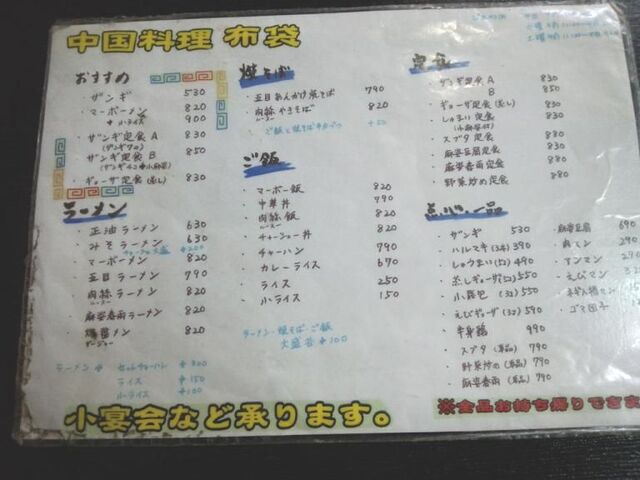 中国料理 布袋
おすすめ
・ザンギ 530
・マーボーメン 820
+小ライス 900
・ザンギ定食 A 830
・ザンギ定食 B 850
・ギョーザ定食(蒸し) 830
ラーメン
・正油ラーメン 630
・みそラーメン 630
・マーボーメン 820
・五目ラーメン 790
・肉絲ラーメン 820
・麻婆春雨ラーメン 820
820
ラーメン +
ライス 150
小ライス +100
焼そば
・五目あんかけ焼そば 790
・肉絲やきそば 820
+50
ご飯
・マーボー飯 820
・中華丼 790
・肉絲飯 820
・チャーシュー丼 820
・チャーハン 790
・カレーライス 670
・ライス 250
・小ライス 150
ラーメン・焼そば・ご飯
大盛各 +100
定食
・ザンギ定食 A 830
B 850
・ギョーザ定食(蒸し) 830
・しゅうまい定食 830
・スブタ定食 880
・麻婆豆腐定食 880
・麻婆春雨定食 880
・野菜炒め定食 880
点心・一品
・ザンギ 530
・ハルマキ(3本) 390
・しゅうまい(5コ) 490
・蒸しギョーザ(5コ) 550
・小籠包(3コ) 550
・えびギョーザ(3コ) 590
・半身鶏 990
・スブタ(単品) 790
・野菜炒め(単品) 790
・麻婆春雨(単品) 790
・麻婆豆腐 690
・肉マン 290
・アンマン 290
・えびマン
・ゴマ団子
小宴会など承ります。
※全品お持ち帰りできま